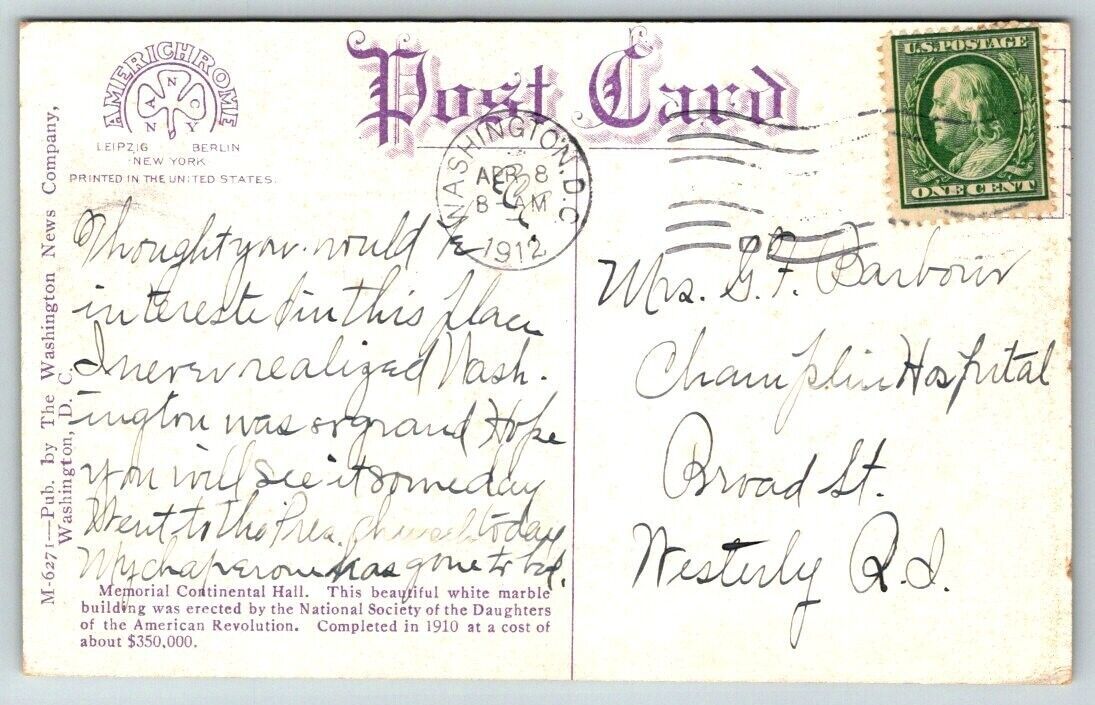 AMERICHROME
A N C
N Y
LEIPZIG BERLIN
NEW YORK
PRINTED IN THE UNITED STATES.
Post Card
U.S. POSTAGE
ONE CENT
WASHINGTON, D.C.
APR 8
8 AM
1912
M-6271—Pub. by The Washington News Company,
Washington, D. C.
Thought you would be
interested in this place
I never realized Wash.
ington was so grand Hope
you will see it someday
Went to the Pres. Church today
My chaperone has gone to bed.
Memorial Continental Hall. This beautiful white marble
building was erected by the National Society of the Daughters
of the American Revolution. Completed in 1910 at a cost of
about $350,000.
Mrs. G. F. Barbour
Champlin Hospital
Broad St.
Westerly R.I.